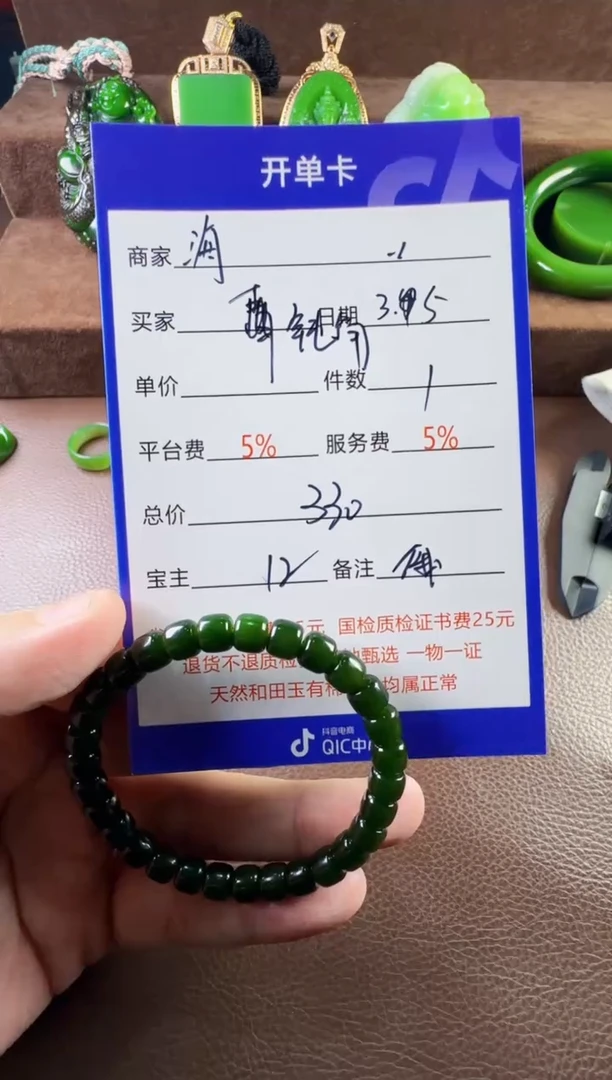 开单卡
商家 海
买家 日期 3.
单价 件数 1
平台费 5% 服务费 5%
总价 330
宝主 12 备注
元 国检质检证书费25元
退货不退质检 甄选 一物一证
天然和田玉有棉 均属正常
抖音电商
QIC中